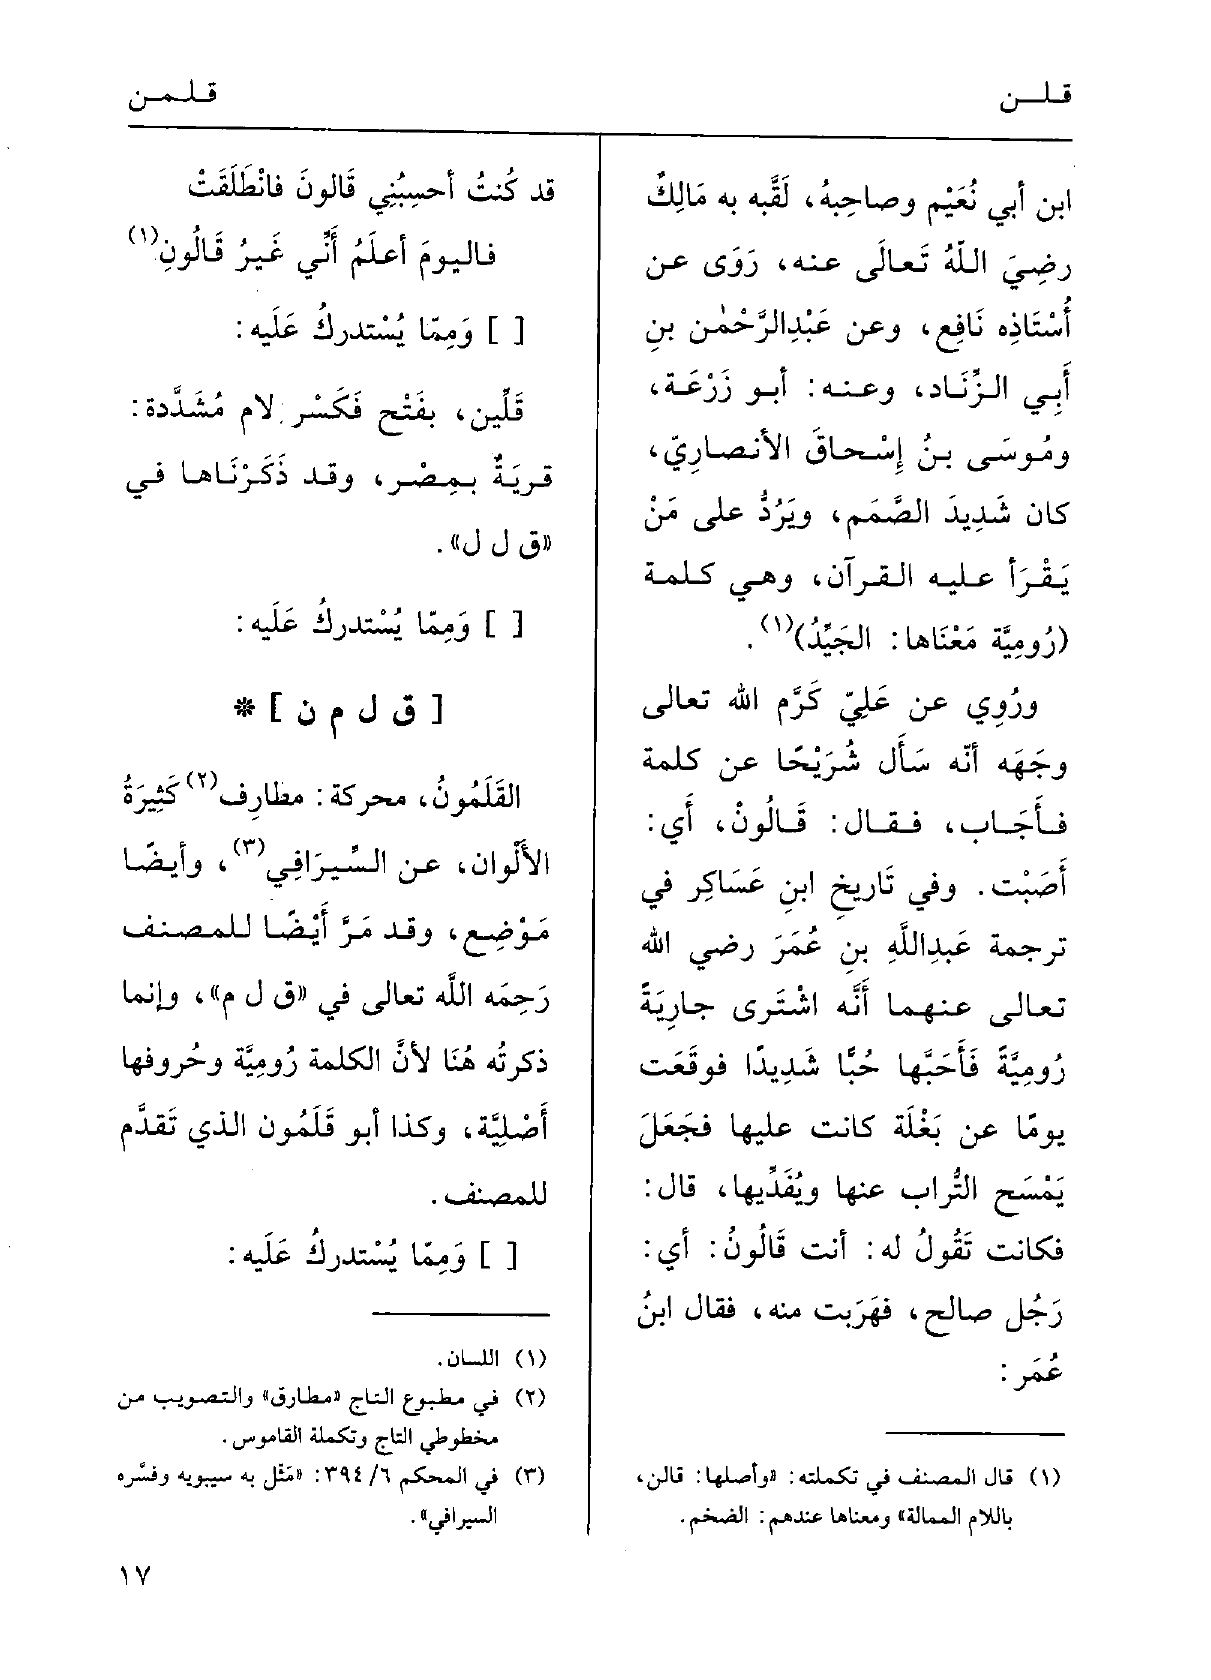 قلن
قلمن
ابن أبي نُعَيْمٍ وصاحِبهُ، لَقَّبه به مَالِكٌ
رضِيَ اللّهُ تَعالَى عنه، رَوَى عن
أُسْتَاذِه نَافِعٍ، وعن عَبْدِالرَّحْمٰن بنِ
أَبِي الزِّنَاد، وعنه: أبو زَرْعَة،
ومُوسَى بنُ إسْحاقَ الأنصارِيّ،
كان شَدِيدَ الصَّمَمِ، ويَرُدُّ على مَنْ
يَقْرَأ عليه القرآن، وهي كلمة
(رُومِيَّة مَعْنَاها: الجَيِّدُ)(١).
ورُوِي عن عَلِيّ كَرَّم الله تعالى
وجَهَه أنّه سَأل شُرَيْحًا عن كلمة
فأجَاب، فقال: قَالُونْ، أي:
أصَبْت. وفي تَاريخ ابنِ عَسَاكِر في
ترجمة عَبدِاللَّهِ بنِ عُمَرَ رضي الله
تعالى عنهما أَنَّه اشْتَرى جارِيَةً
رُومِيَّةً فَأحَبَّها حُبًّا شَدِيدًا فوقَعَت
يومًا عن بَغْلَة كانت عليها فجَعَلَ
يَمْسَح التُّراب عنها ويُفَدِّيها، قال:
فكانت تَقُولُ له: أنت قَالُونُ: أي:
رَجُل صالح، فهَرَبت منه، فقال ابنُ
عُمَر:
(١) قال المصنف في تكملته: «وأصلها: قالن،
باللام الممالة» ومعناها عندهم: الضخم.
قد كُنتُ أحسِبُنِي قَالونَ فانْطَلَقَتْ
فاليومَ أعلَمُ أَنِّي غَيرُ قَالُونِ(١)
[ ] وَمِمّا يُسْتدركُ عَلَيه:
قَلِّين، بفَتْح فكَسْر لام مُشَدَّدة:
قريَةٌ بمِصْر، وقد ذَكَرْنَاها في
«ق ل ل».
[ ] وَمِمّا يُسْتدركُ عَلَيه:
[ ق ل م ن ] *
القَلَمُونُ، محركة: مطارِف(٢) كَثِيرَةُ
الأَلْوان، عن السِّيرَافِي(٣)، وأيضًا
مَوْضِع، وقد مَرَّ أَيْضًا للمصنف
رَحِمَه اللَّه تعالى في «ق ل م»، وإنما
ذكرتُه هُنَا لأنَّ الكلمة رُومِيَّة وحُروفها
أَصْلِيَّة، وكذا أبو قَلَمُون الذي تَقدَّم
للمصنف.
[ ] وَمِمّا يُسْتدركُ عَلَيه:
(١) اللسان.
(٢) في مطبوع التاج «مطارق» والتصويب من
مخطوطي التاج وتكملة القاموس.
(٣) في المحكم ٦/ ٣٩٤: «مَثّل به سيبويه وفسّره
السيرافي».
١٧